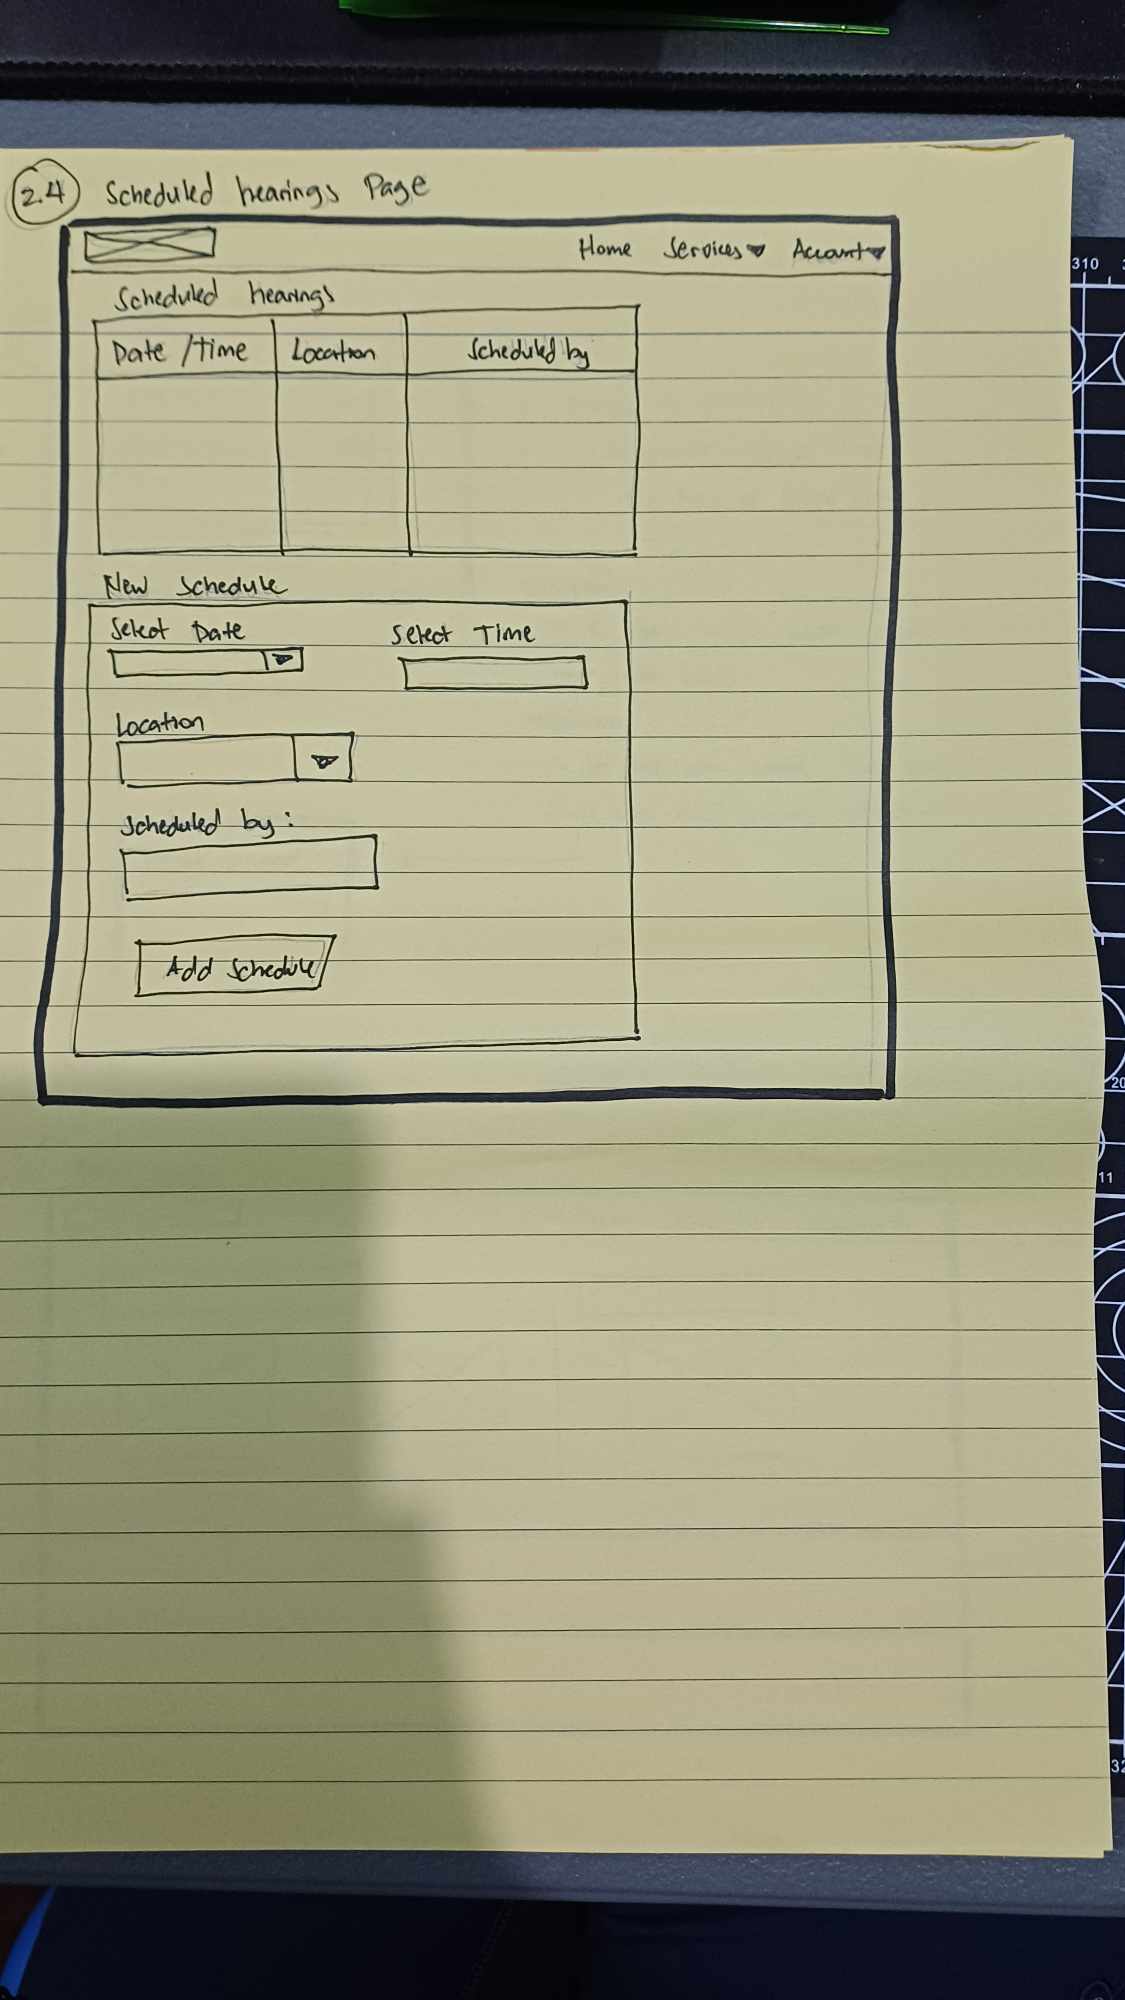 2.4 Scheduled hearings Page
Home Services Account
Scheduled hearings
Date /Time Location Scheduled by
New Schedule
Select Date Select Time
Location
Scheduled by:
Add Schedule
310
20
11